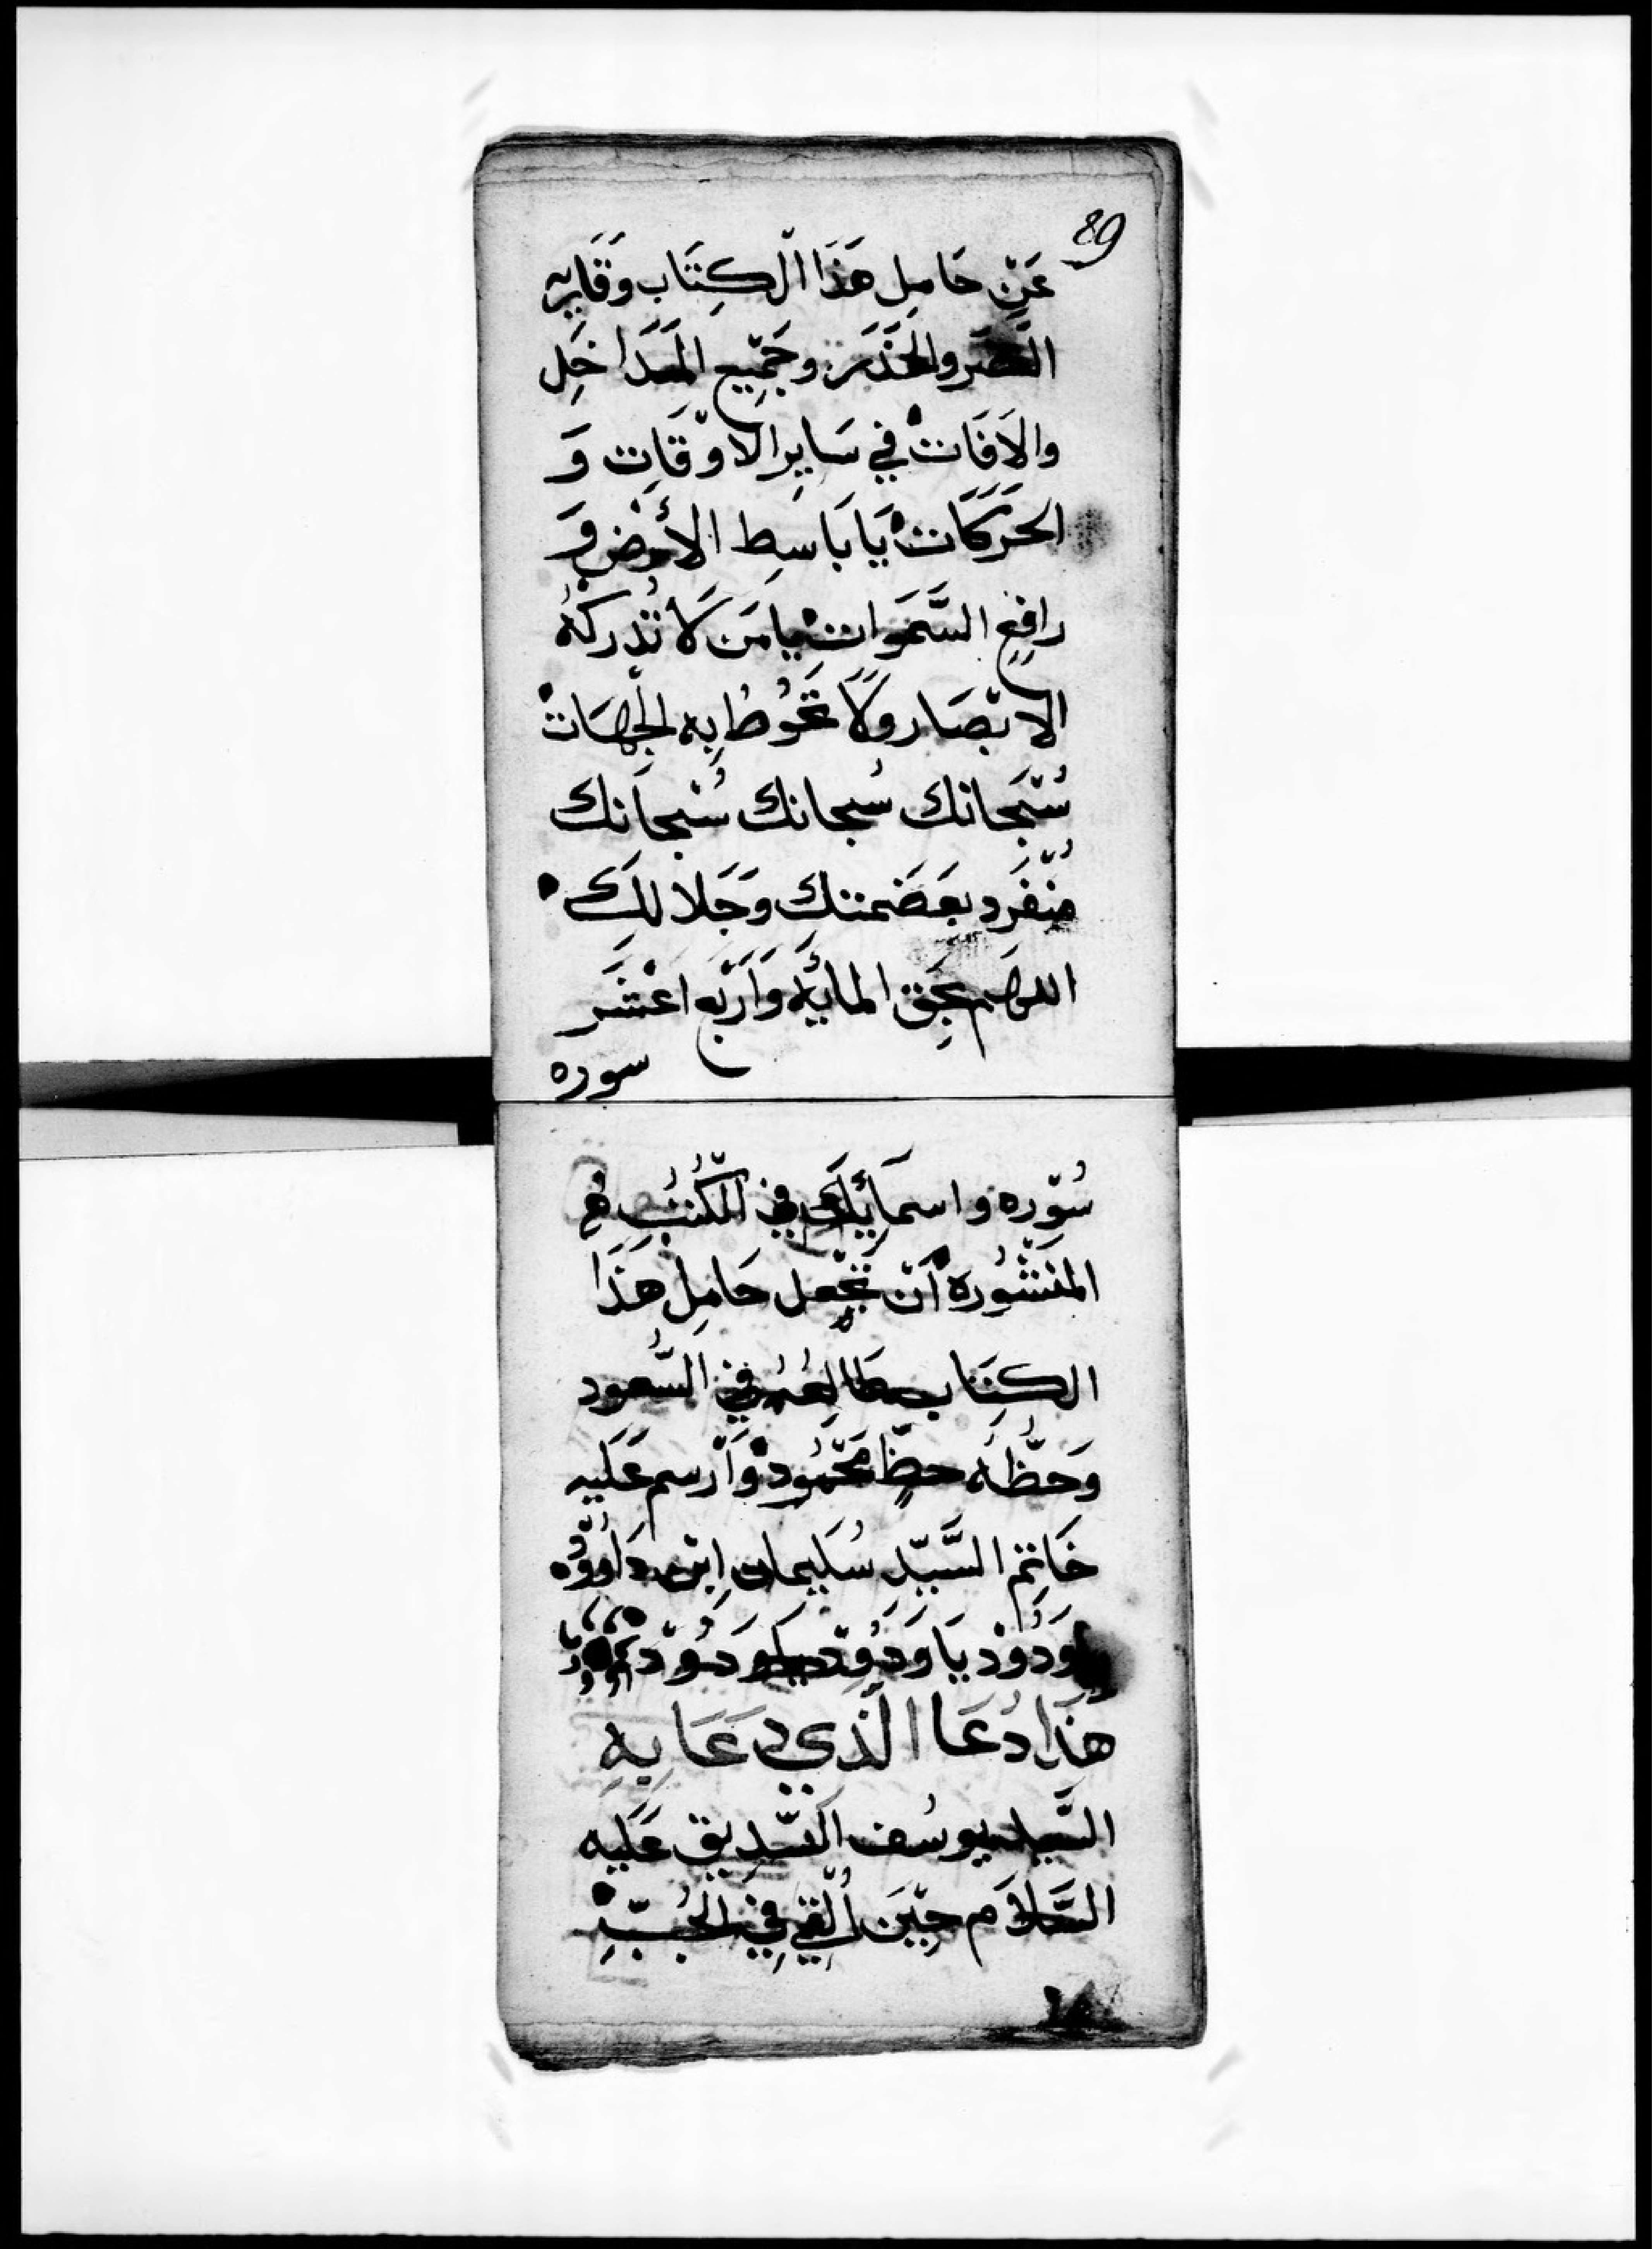 89
عَنِ حَامِل هَذَا الْكِتَاب وَقَارِيه
والحَذَر وجَمِّيع المَدَاخِل
والاَفَاتْ في سَايِر الاوْقَاتِ وَ
الحَرَكَاتْ يَا بَاسِط الأَرْض وَ
رافِع السَّمَوات يامَن لَا تُدْرِكْهُ
الابْصَار ولَا تَحُوطُ بِه الجْهَاتْ
سُبْحَانك سُبحانك سُبْحَانك
مُنْفَرِد بعَضَمتك وَجَلالَك
اللهم بحَق المايَه وَأرْبَع اعْشَر
سوره
سُوّره واسمَايَك في الكُتُب هم
المَنْشُوره أنْ تَجْعل حَامِل هَذَا
الكِتَاب طَالِعُهُ في السُّعود
وَحَظُّهُ حظّ مَحْمُودْ وَأرسم عَلَيه
خَاتِم السَّيِّد سُلَيمان ابْن دَاوُوُّد
ودُودْ يَا وَدُودْ يا وَدُوْد
هَذَا دُعَا الَّذي دَعَا بِهِ
السَّيد يوسُف السّديق عَلَيه
السَّلاَم حِيْنَ أُلْقي في الجُبّ